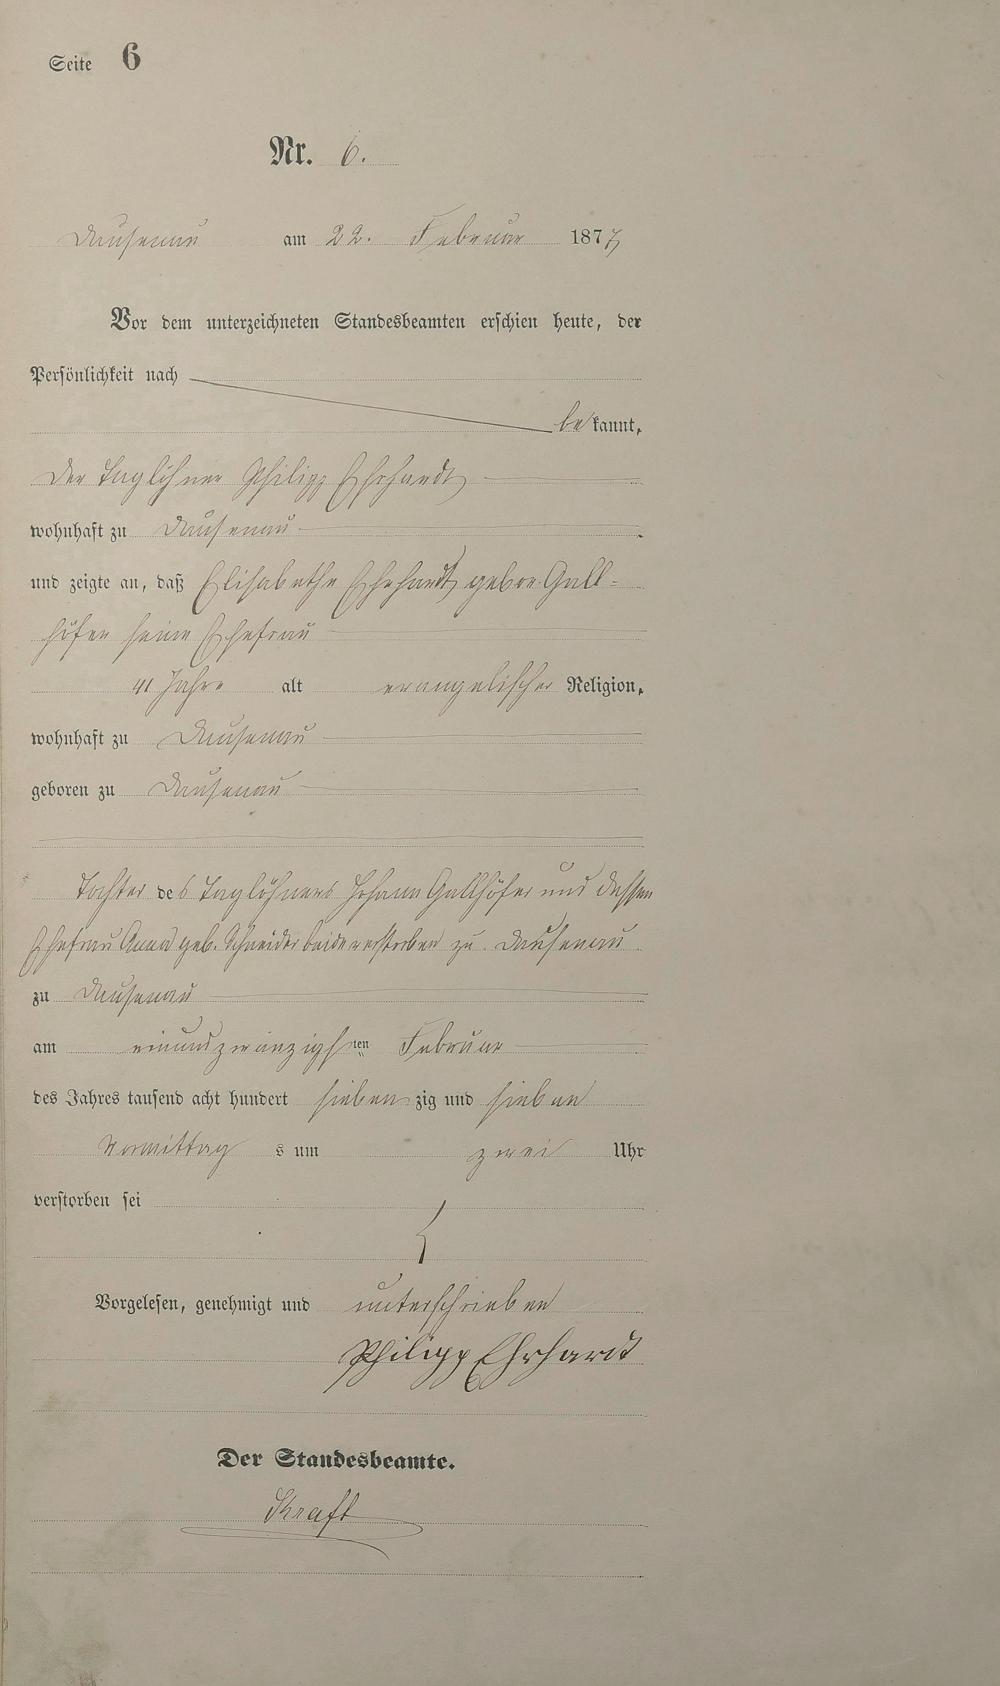 Seite 6
Nr. 6.
Dausenau am 22. Februar 1877
Vor dem unterzeichneten Standesbeamten erschien heute, der
Persönlichkeit nach
bekannt,
der Taglöhner Philipp Ehrhardt
wohnhaft zu Dausenau
und zeigte an, daß Elisabethe Ehrhardt gebore Gall-
höfer seine Ehefrau
41 Jahre alt evangelischer Religion,
wohnhaft zu Dausenau
geboren zu Dausenau
Tochter des Taglöhners Johann Gallhöfer und dessen
Ehefrau Anna geb. Schneider beide verstorben zu Dausenau
zu Dausenau
am einundzwanzigsten Februar
des Jahres tausend acht hundert siebenzig und sieben
Vormittags um zwei Uhr
verstorben sei
Vorgelesen, genehmigt und unterschrieben
Philipp Ehrhardt
Der Standesbeamte.
Kraft